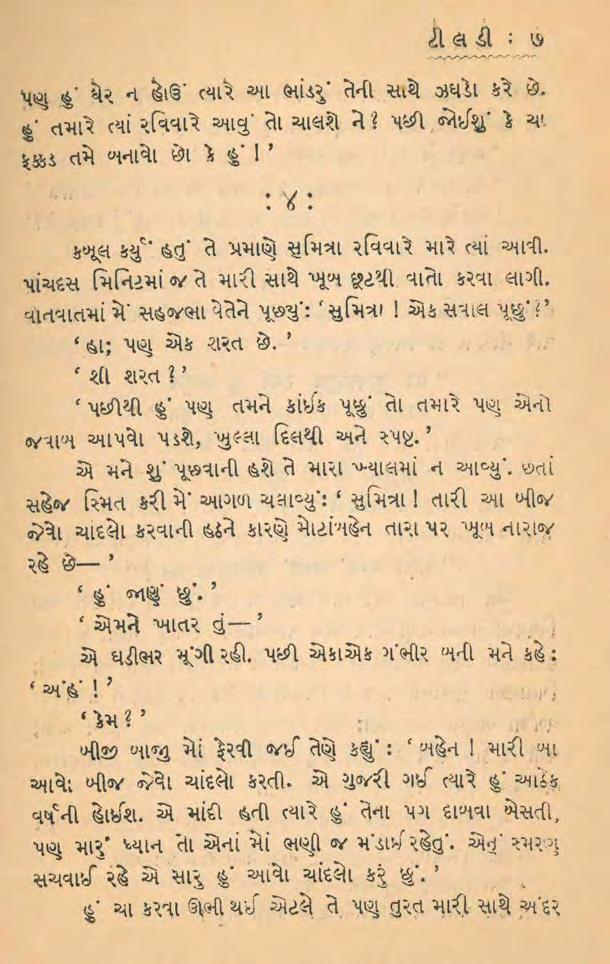 ટીલડી : ૭
પણ હું ઘેર ન હોઉં ત્યારે આ ભાંડરું તેની સાથે ઝઘડો કરે છે.
હું તમારે ત્યાં રવિવારે આવું તો ચાલશે ને? પછી જોઈશું કે ચા
ફક્કડ તમે બનાવો છો કે હું !’
: ૪ :
કબૂલ કર્યું હતું તે પ્રમાણે સુમિત્રા રવિવારે મારે ત્યાં આવી.
પાંચદસ મિનિટમાં જ તે મારી સાથે ખૂબ છૂટથી વાતો કરવા લાગી.
વાતવાતમાં મેં સહજભાવેતેને પૂછયું: ‘સુમિત્રા ! એક સવાલ પૂછું?’
‘હા; પણ એક શરત છે.’
‘શી શરત?’
‘પછીથી હું પણ તમને કાંઈક પૂછું તો તમારે પણ એનો
જવાબ આપવો પડશે, ખુલ્લા દિલથી અને સ્પષ્ટ.’
એ મને શું પૂછવાની હશે તે મારા ખ્યાલમાં ન આવ્યું. છતાં
સહેજ સ્મિત કરી મેં આગળ ચલાવ્યું: ‘સુમિત્રા ! તારી આ બીજ
જેવો ચાંદલો કરવાની હઠને કારણે મોટાંબહેન તારા પર ખૂબ નારાજ
રહે છે—’
‘હું જાણું છું.’
‘એમને ખાતર તું—’
એ ઘડીભર મૂંગી રહી. પછી એકાએક ગંભીર બની મને કહે :
‘અંહં !’
‘કેમ?’
બીજી બાજુ મોં ફેરવી જઈ તેણે કહ્યું : ‘બહેન ! મારી બા
આવો બીજ જેવો ચાંદલો કરતી. એ ગુજરી ગઈ ત્યારે હું આઠેક
વર્ષની હોઈશ. એ માંદી હતી ત્યારે હું તેના પગ દાબવા બેસતી,
પણ મારું ધ્યાન તો એનાં મોં ભણી જ મંડાઈ રહેતું. એનું સ્મરણ
સચવાઈ રહે એ સારુ હું આવો ચાંદલો કરું છું.’
હું ચા કરવા ઊભી થઈ એટલે તે પણ તુરત મારી સાથે અંદર